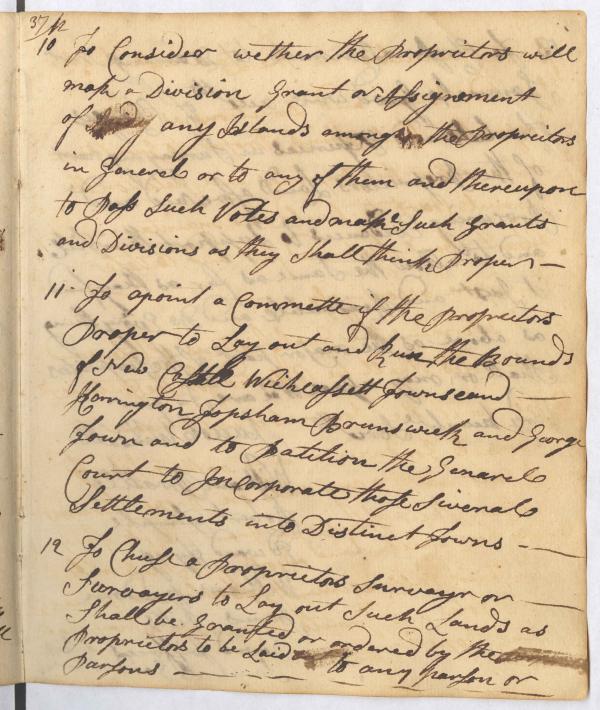 37
10 To Consider wether the Proprietors will
make a Division Grant or Assignement
of any Islands amongs the Proprietors
in General or to any of them and thereupon
to Pass Such Votes and make Such Grants
and Divisions as they Shall think Proper —
11 To apoint a Committe if the Proprietors
Proper to Lay out and Run the Bounds
of New Castle Wichcassett Townseand —
Harrington Topsham Brunswick and George
Town and to Patition the Genarel
Court to InCorporate those Siveral
Settlements into Distinct Towns — —
12 To Chuse a Proprietors Surveyr or —
Surveyers to Lay out Such Lands as
Shall be Granted or ordered by the
Proprietors to be Laid to any parson or
Parsons — — — — —